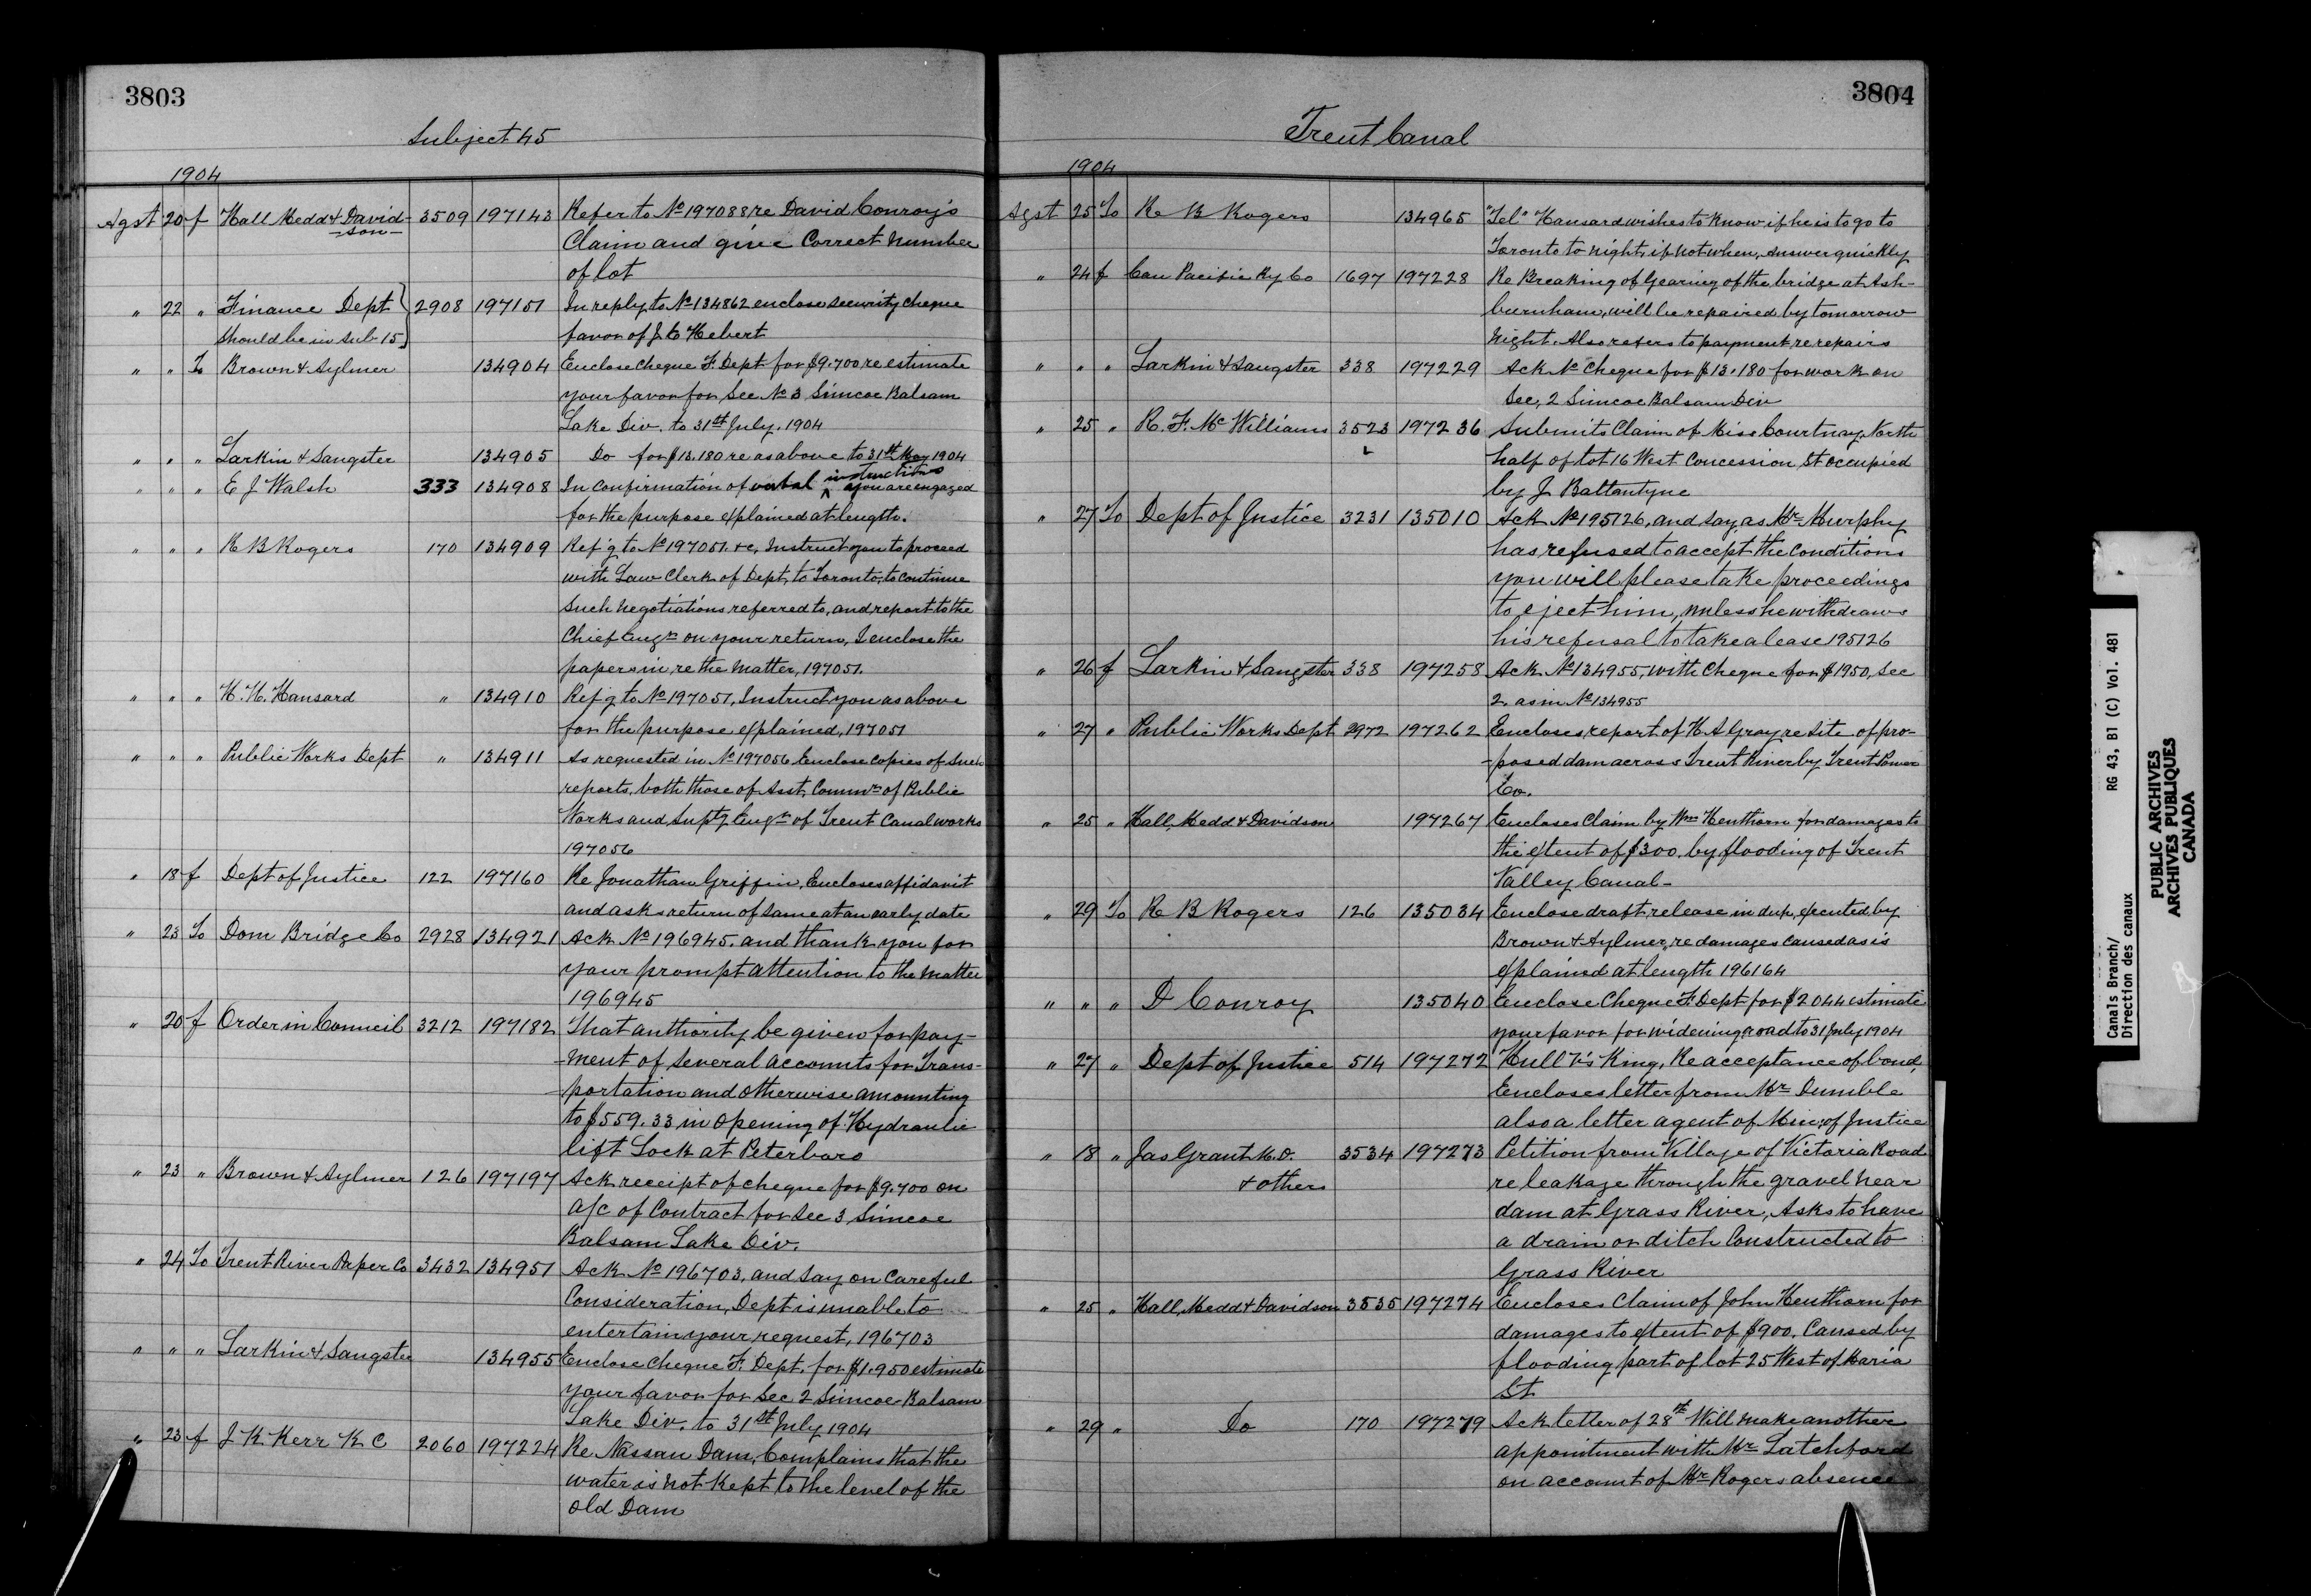 3803
Subject 45
1904
Agst 20 f Hall Medd & David- 3509 197143 Refer to No 197088 re David Conroy's
-son- Claim and give Correct Number
of lot
" 22 " Finance Dept 2908 197151 In reply to No 134862 enclose security cheque
Should be in Sub 15 favor of J. C Hebert
" " To Brown & Aylmer 134904 Enclose Cheque F. Dept for $9.700 re estimate
your favor for Sec No 3 Simcoe Balsam
Lake Div. to 31st July. 1904
" " " Larkin & Sangster 134905 Do for $13.180 re as above to 31st May 1904
" " " E J Walsh 333 134908 In Confirmation of verbal instructions you are engaged
for the purpose explained at length.
" " " R B Rogers 170 134909 Ref'g to No 197051. &c, Instruct you to proceed
with Law Clerk of Dept, to Toronto, to Continue
Such Negotiations referred to, and report to the
Chief Engr on your return, I enclose the
papers in re the Matter, 197051.
" " " H. H. Hansard " 134910 Ref'g to No 197051, Instruct you as above
for the purpose explained, 197051
" " " Public Works Dept " 134911 As requested in No 197056 Enclose Copies of Such
reports, both those of Asst. Commr of Public
Works and Suptg Engr of Trent Canal works
197056
" 18 f Dept of Justice 122 197160 Re Jonathan Griffin, Encloses affidavit
and asks return of Same at an early date
" 23 To Dom Bridge Co 2928 134921 Ack No 196945. and thank you for
your prompt attention to the Matter
196945
" 20 f Order in Council 3212 197182 That authority be given for pay-
-ment of Several accounts for Trans-
-portation and otherwise amounting
to $559.33 in Opening of Hydraulic
lift Lock at Peterboro
" 23 " Brown & Aylmer 126 197197 Ack receipt of cheque for $9.700 on
a/c of Contract for Sec 3 Simcoe
Balsam Lake Div.
" 24 To Trent River Paper Co 3432 134951 Ack No 196703, and Say on Careful
Consideration, Dept is unable to
entertain your request, 196703
" " " Larkin & Sangster 134955 Enclose Cheque F. Dept. for $1.950 estimate
your favor for Sec 2 Simcoe-Balsam
Lake Div. to 31st July 1904
" 23 f J K Kerr K C 2060 197224 Re Nassau Dam, Complains that the
water is not Kept to the level of the
Old Dam
3804
Trent Canal
1904
Agst 25 To R B Rogers 134965 "Tel" Hansard wishes to Know if he is to go to
Toronto to night, if not when, Answer quickly
" 24 f Can Pacific Ry Co 1697 197228 Re Breaking of Gearing of the bridge at Ash-
burnham, will be repaired by tomorrow
Night. Also refers to payment re repairs
" " " Larkin & Sangster 338 197229 Ack No Cheque for $13.180 for work on
Sec, 2 Simcoe Balsam Div
" 25 " R. F. McWilliams 3523 197236 Submits Claim of Miss Courtnay, North
half of lot 16 West Concession St occupied
by J Ballantyne
" 27 To Dept of Justice 3231 135010 Ack No 195126, and Say, as Mr Murphy
has refused to accept the Conditions
you will please take proceedings
to eject him, unless he withdraws
his refusal to take a lease 195126
" 26 f Larkin & Sangster 338 197258 Ack No 134955, with Cheque for $1950, Sec
2. as in No 134955
" 27 " Public Works Dept 2972 197262 Encloses report of H A Gray re Site of pro-
-posed dam across Trent River by Trent Power
Co.
" 25 " Hall, Medd & Davidson 197267 Encloses Claim by Wm Henthorn for damages to
the extent of $300. by flooding of Trent
Valley Canal-
" 29 To R B Rogers 126 135034 Enclose draft release in dup, executed by
Brown & Aylmer, re damages Caused as is
explained at length 196164
" " " D Conroy 135040 Enclose Cheque F. Dept for $2044 estimate
your favor for widening road to 31 July 1904
" 27 " Dept of Justice 514 197272 Hull Vs King, Re acceptance of bond,
Encloses letter from Mr Dumble
also a letter agent of Min. of Justice
" 18 " Jas Grant M.D. 3534 197273 Petition from Village of Victoria Road
& others re leakage through the gravel near
dam at Grass River, Asks to have
a drain or ditch Constructed to
Grass River
" 25 " Hall, Medd & Davidson 3535 197274 Encloses Claim of John Henthorn for
damages to extent of $900. Caused by
flooding part of lot 25 West of Maria
St
" 29 " Do 170 197279 Ack letter of 28th Will make another
appointment with Mr Latchford
on account of Mr Rogers absence
Canals Branch/ RG 43, B1 (C) Vol. 481
Direction des canaux
PUBLIC ARCHIVES
ARCHIVES PUBLIQUES
CANADA